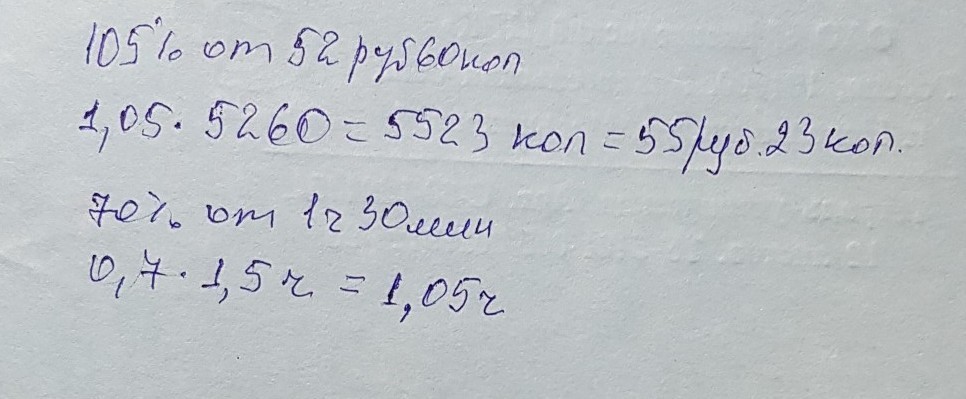 105% от 52 руб 60 коп
1,05 · 5260 = 5523 коп = 55 руб. 23 коп.
70% от 1ч 30 мин
0,7 · 1,5 ч = 1,05 ч